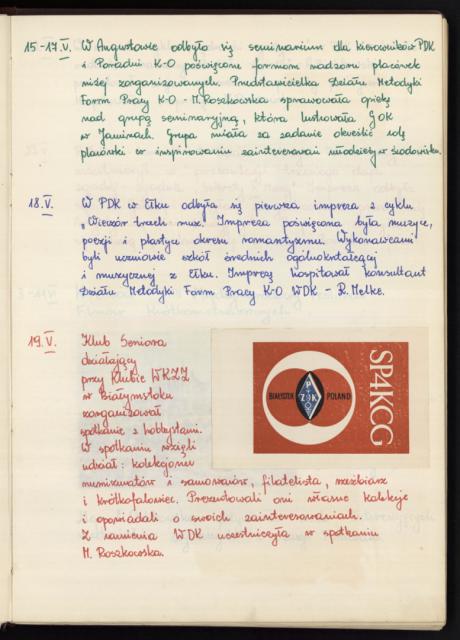 15-17.V. W Augustowie odbyło się seminarium dla kierowników PDK
i Poradni K-O poświęcone formom nadzoru placówek
niżej zorganizowanych. Przedstawicielka Działu Metodyki
Form Pracy K-O - M. Roszkowska sprawowała opiekę
nad grupą seminaryjną, która lustrowała GOK
w Janinach. Grupa miała za zadanie określić rolę
placówki w inspirowaniu zainteresowań młodzieży w środowisku.
18.V. W PDK w Ełku odbyła się pierwsza impreza z cyklu
„Wieczór trzech muz". Impreza poświęcona była muzyce,
poezji i plastyce okresu romantyzmu. Wykonawcami
byli uczniowie szkół średnich ogólnokształcącej
i muzycznej z Ełku. Imprezę hospitował konsultant
Działu Metodyki Form Pracy K-O WDK - R. Melke.
19.V. Klub Seniora
działający
przy Klubie WKZZ
w Białymstoku
zorganizował
spotkanie z hobbystami.
W spotkaniu wzięli
udział: kolekcjoner
numizmatów i samowarów, filatelista, rzeźbiarz
i krótkofalowiec. Prezentowali oni własne kolekcje
i opowiadali o swoich zainteresowaniach.
Z ramienia WDK uczestniczyła w spotkaniu
M. Roszkowska.
BIAŁYSTOK
PZK
POLAND
SP4KCG